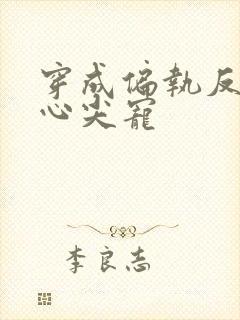 穿成偏執反
心尖寵
李良志